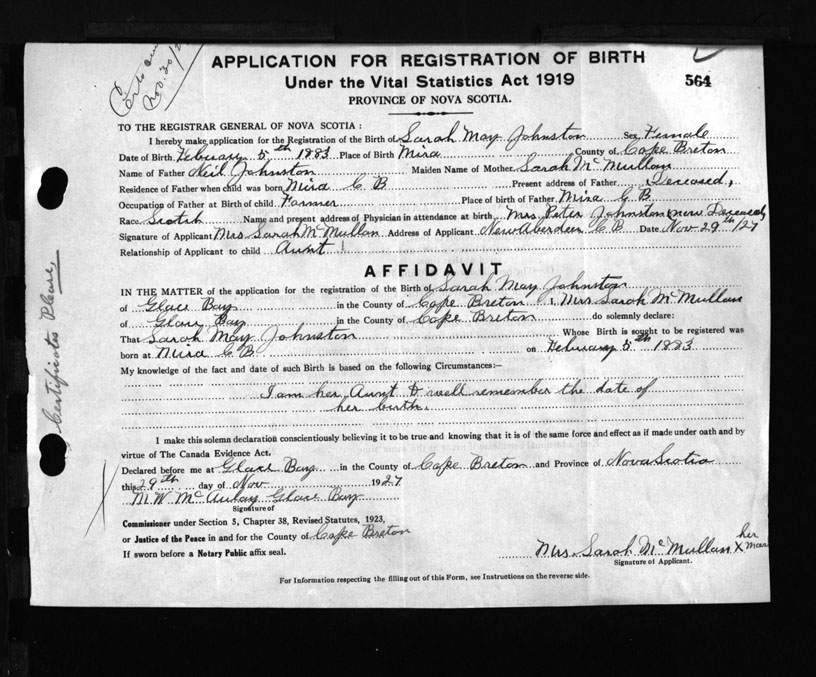 Nov. 30/2
APPLICATION FOR REGISTRATION OF BIRTH
Under the Vital Statistics Act 1919
564
PROVINCE OF NOVA SCOTIA.
TO THE REGISTRAR GENERAL OF NOVA SCOTIA :
I hereby make application for the Registration of the Birth of Sarah May Johnston Sex Female
Date of Birth February 5th 1883 Place of Birth Mira County of Cape Breton
Name of Father Neil Johnston Maiden Name of Mother Sarah McMullan
Residence of Father when child was born Mira C B Present address of Father Deceased,
Occupation of Father at Birth of child Farmer Place of birth of Father Mira C B
Race Scotch Name and present address of Physician in attendance at birth Mrs Peter Johnston (now Deceased)
Signature of Applicant Mrs Sarah McMullan Address of Applicant New Aberdeen C B Date Nov 29th/27
Relationship of Applicant to child Aunt
AFFIDAVIT
IN THE MATTER of the application for the registration of the Birth of Sarah May Johnston
of Glace Bay in the County of Cape Breton I, Mrs Sarah McMullan
of Glace Bay in the County of Cape Breton do solemnly declare:
That Sarah May Johnston Whose Birth is sought to be registered was
born at Mira C B on February 5th 1883
My knowledge of the fact and date of such Birth is based on the following Circumstances:—
I am her Aunt & well remember the date of
her birth.
I make this solemn declaration conscientiously believing it to be true and knowing that it is of the same force and effect as if made under oath and by
virtue of The Canada Evidence Act.
Declared before me at Glace Bay in the County of Cape Breton and Province of Nova Scotia
this 29th day of Nov 1927
M W McAulay Glace Bay
Signature of
Commissioner under Section 5, Chapter 38, Revised Statutes, 1923,
or Justice of the Peace in and for the County of Cape Breton
If sworn before a Notary Public affix seal.
Mrs Sarah McMullan her X mark
Signature of Applicant.
For Information respecting the filling out of this Form, see Instructions on the reverse side.
Certificate Please,